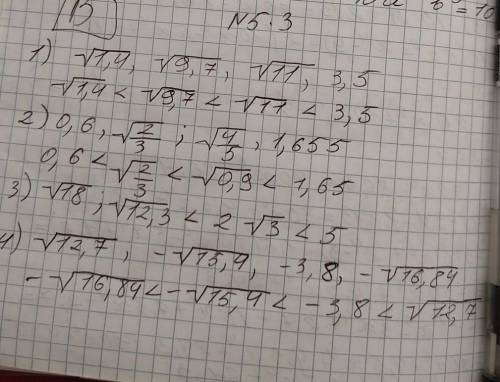 В
b² = 10
N5.3
1) √1,4, √9,7, √11, 3,5
√1,4 < √9,7 < √11 < 3,5
2) 0,6, √2/3; √4/5, 1,655
0,6 < √2/3 < √0,9 < 1,65
3) √18; √12,3 < 2√3 < 5
4) √12,7, -√15,4, -3,8, -√16,84
-√16,84 < -√15,4 < -3,8 < √12,7